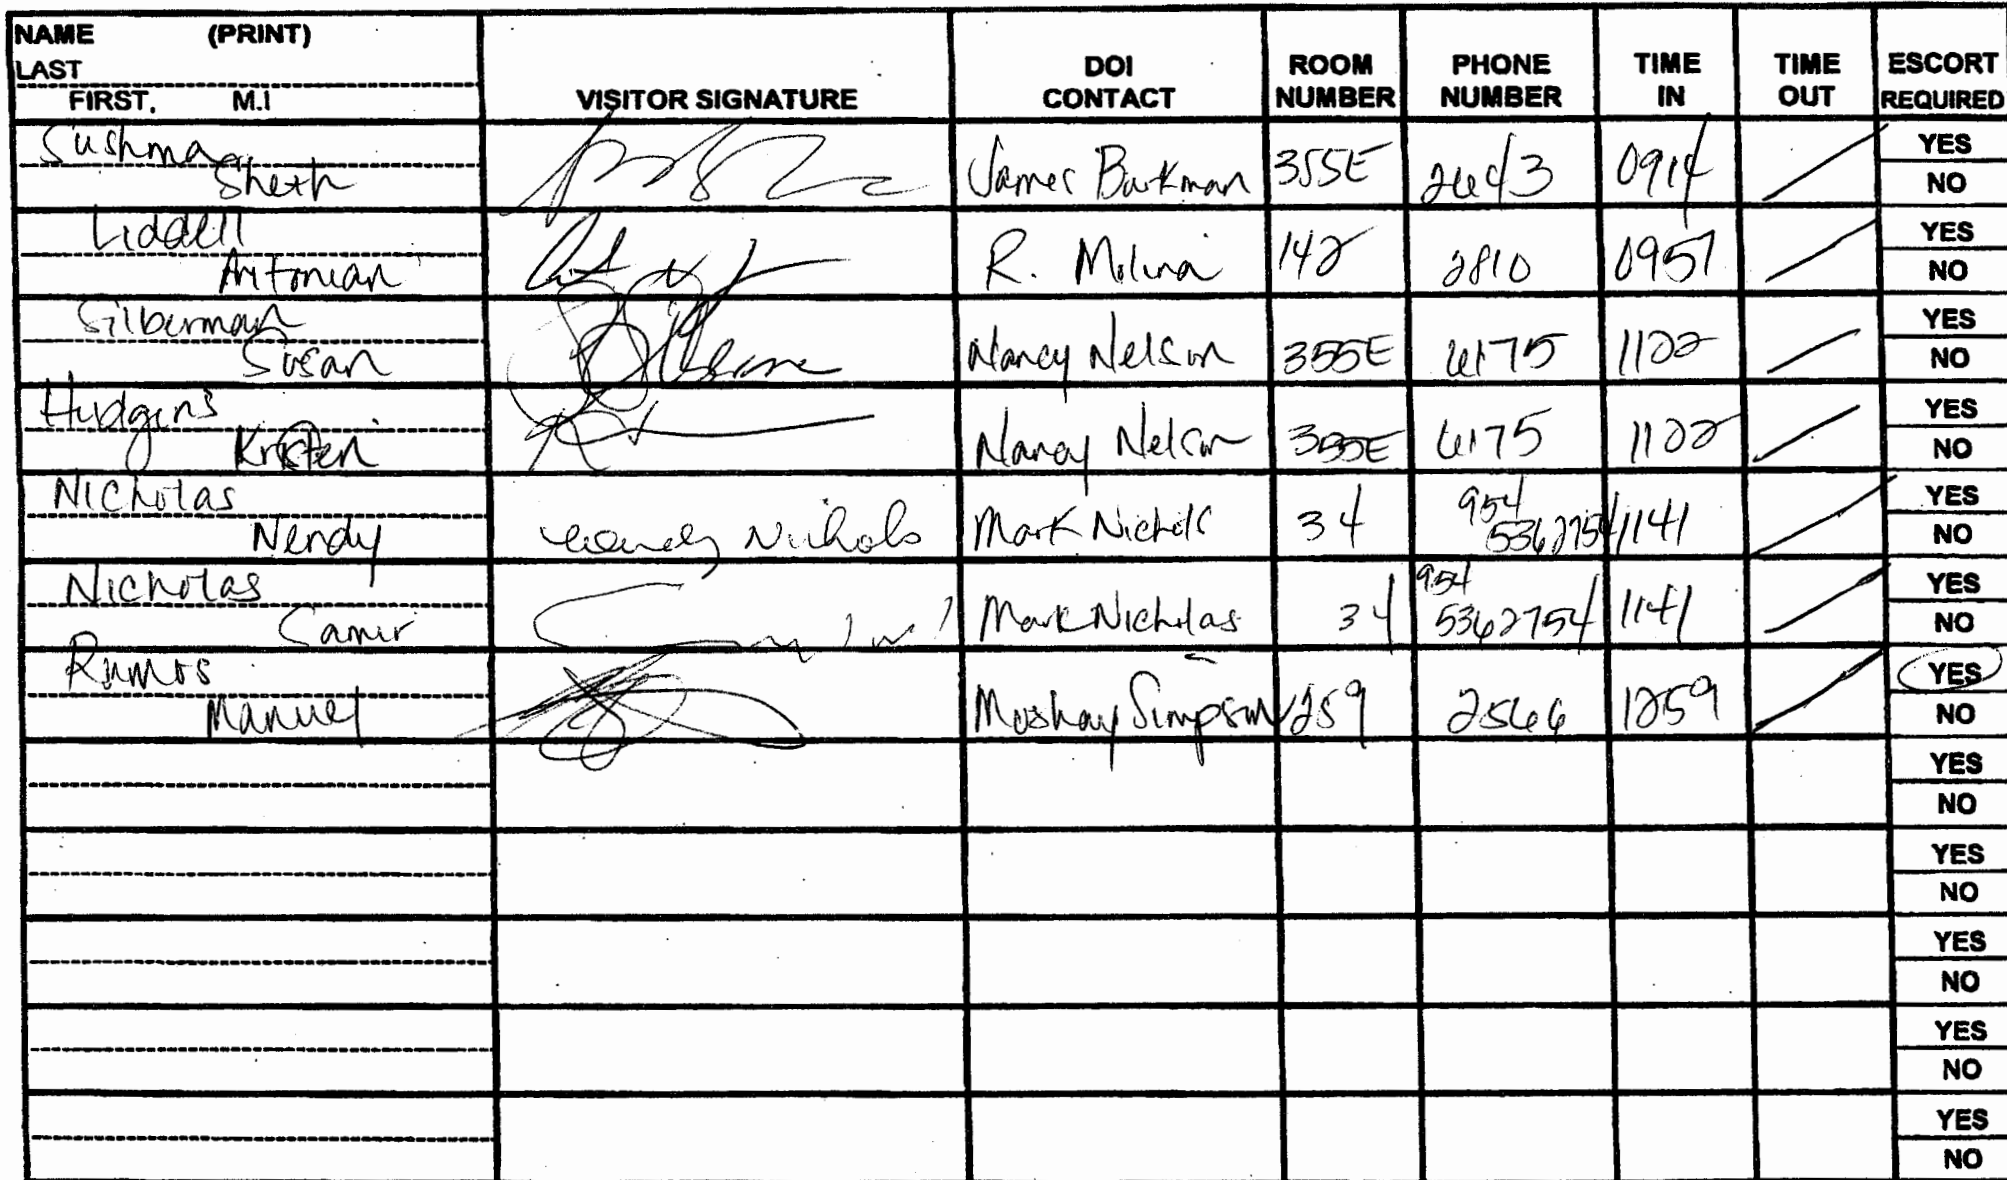 NAME (PRINT)
LAST
FIRST, M.I
VISITOR SIGNATURE
DOI CONTACT
ROOM NUMBER
PHONE NUMBER
TIME IN
TIME OUT
ESCORT REQUIRED
Sushma
Sheth
James Barkman 355E 2643 0914
YES
NO
Liddell
Antonian
R. Molina 142 2810 0957
YES
NO
Silberman
Susan
Nancy Nelson 355E 6175 1122
YES
NO
Hudgins
Kristen
Nancy Nelson 355E 6175 1122
YES
NO
Nicholas
Nendy
Nichols Mark Nichols 34 954 5362754 1141
YES
NO
Nicholas
Samir
Mark Nicholas 34 954 5362754 1141
YES
NO
Manuel
Simpson 259 2566 1259
YES
NO
YES
NO
YES
NO
YES
NO
YES
NO
YES
NO